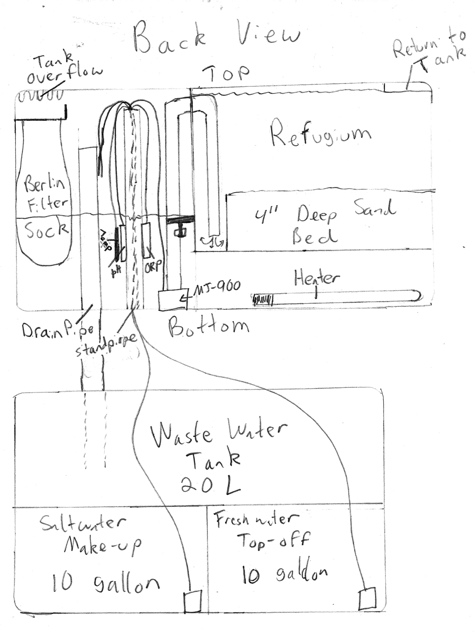 Back View
Tank
overflow
TOP
Return to
Tank
Refugium
Berlin
Filter
Sock
4" Deep Sand
Bed
pH
ORP
Heater
MJ-900
Drain Pipe
standpipe
Bottom
Waste Water
Tank
20 L
Saltwater
Make-up
10 gallon
Fresh water
Top-off
10 gallon